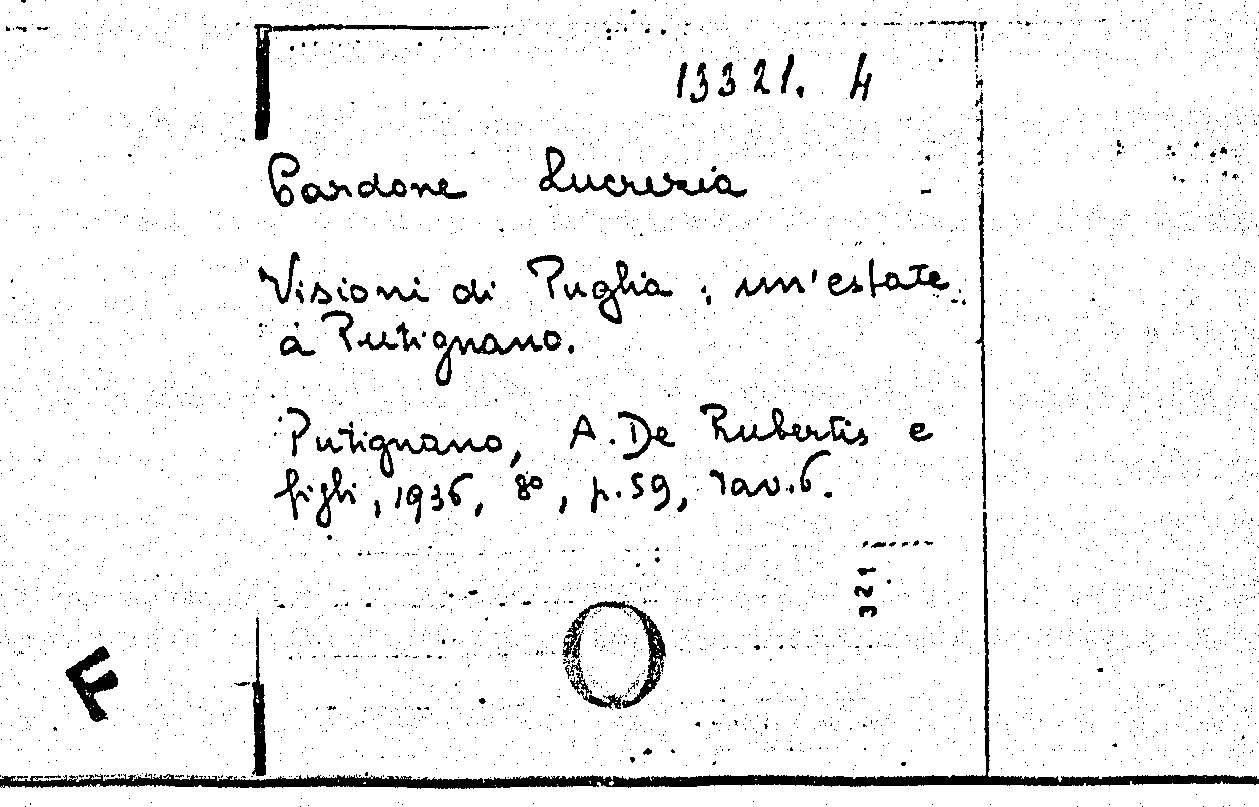 13321. 4
Cardone Lucrezia
Visioni di Puglia : un'estate
a Putignano.
Putignano, A. De Rubertis e
figli, 1936, 8°, p. 59, tav. 6.
321
F